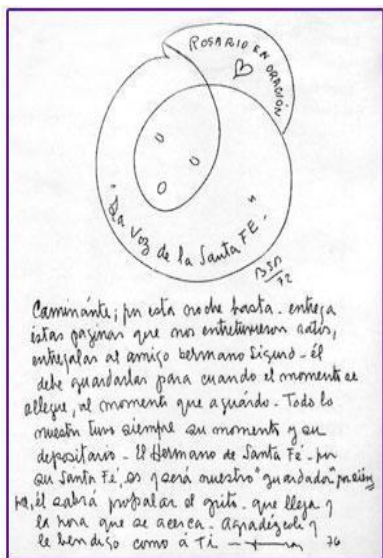 ROSARIO EN ORACIÓN
"La Voz de la Santa FE."
BSP
72
Caminánte; por esta noche basta. entrega
éstas paginas que nos entretuvieron ratos,
entregalas al amigo hermano Sigurd - él
debe guardarlas para cuando el momento se
allegue, al momento que aguárdo. Todo lo
nuestro tuvo siempre su momento y su
depositario - El Hermano de Santa Fé. por
su Santa Fé, es y será nuestro "guardador"
él sabrá propalar el grito. que llega y
la hora que se acerca. agradézcoli y
le bendigo como á Ti
76